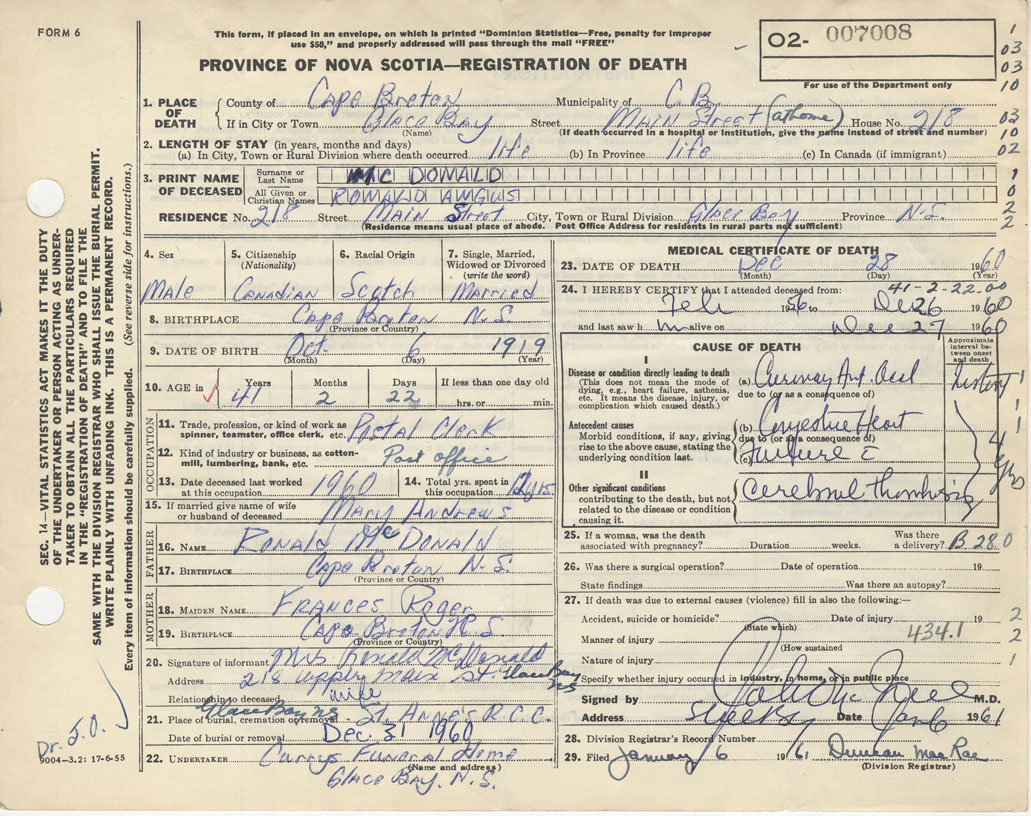 FORM 6
This form, if placed in an envelope, on which is printed "Dominion Statistics—Free, penalty for improper
use $50," and properly addressed will pass through the mail "FREE"
PROVINCE OF NOVA SCOTIA—REGISTRATION OF DEATH
O2- 007008
For use of the Department only
1
03
03
10
03
10
02
1
0
2
2
1. PLACE OF DEATH
County of Cape Breton Municipality of C.B.
If in City or Town Glace Bay Street Main Street (at home) House No. 218
(Name) (If death occurred in a hospital or institution, give the name instead of street and number)
2. LENGTH OF STAY (in years, months and days)
(a) In City, Town or Rural Division where death occurred life (b) In Province life (c) In Canada (if immigrant)
3. PRINT NAME OF DECEASED
Surname or Last Name MC DONALD
All Given or Christian Names RONALD ANGUS
RESIDENCE No. 218 Street Main Street City, Town or Rural Division Glace Bay Province N.S.
(Residence means usual place of abode. Post Office Address for residents in rural parts not sufficient)
4. Sex
Male
5. Citizenship (Nationality)
Canadian
6. Racial Origin
Scotch
7. Single, Married, Widowed or Divorced (write the word)
Married
8. BIRTHPLACE Cape Breton N.S.
(Province or Country)
9. DATE OF BIRTH Oct- 6 1919
(Month) (Day) (Year)
10. AGE in Years Months Days If less than one day old
41 2 22 hrs. or min.
OCCUPATION
11. Trade, profession, or kind of work as
spinner, teamster, office clerk, etc. Postal Clerk
12. Kind of industry or business, as cotton-
mill, lumbering, bank, etc. Post office
13. Date deceased last worked
at this occupation 1960
14. Total yrs. spent in
this occupation
15. If married give name of wife
or husband of deceased Mary Andrews
FATHER
16. NAME Ronald McDonald
17. BIRTHPLACE Cape Breton N.S.
(Province or Country)
MOTHER
18. MAIDEN NAME Frances Roger
19. BIRTHPLACE Cape Breton N.S
(Province or Country)
20. Signature of informant Mrs Ronald McDonald
Address 218 upper Main St. Glace Bay NS
Relationship to deceased wife
21. Place of burial, cremation or removal Glace Bay NS St. Anne's R.C.C.
Date of burial or removal Dec. 31 1960
22. UNDERTAKER Currys Funeral Home
(Name and address)
Glace Bay. N.S.
MEDICAL CERTIFICATE OF DEATH
23. DATE OF DEATH Dec 28 1960
(Month) (Day) (Year)
41-2-22.00
24. I HEREBY CERTIFY that I attended deceased from:
Feb 1956 to Dec 26 1960
and last saw h im alive on Dec 27 1960
CAUSE OF DEATH
Approximate interval between onset and death
I
Disease or condition directly leading to death
(This does not mean the mode of
dying, e.g., heart failure, asthenia,
etc. It means the disease, injury, or
complication which caused death.)
(a) Coronary Art. Occl
due to (or as a consequence of)
Antecedent causes
Morbid conditions, if any, giving
rise to the above cause, stating the
underlying condition last.
(b) Congestive Heart
due to (or as a consequence of)
(c) Failure
II
Other significant conditions
contributing to the death, but not
related to the disease or condition
causing it.
Cerebral thrombosis
4 yrs
1
1
1
25. If a woman, was the death Was there
associated with pregnancy? Duration weeks. a delivery? B. 28.0
26. Was there a surgical operation? Date of operation 19
State findings Was there an autopsy?
27. If death was due to external causes (violence) fill in also the following:—
Accident, suicide or homicide? Date of injury 19
(State which)
434.1
2
2
1
Manner of injury
(How sustained
Nature of injury
Specify whether injury occurred in industry, in home, or in public place
Signed by M.D.
Address Date Jan 6 1961
28. Division Registrar's Record Number
29. Filed January 6 1961 Duncan MacRae
(Division Registrar)
SEC. 14—VITAL STATISTICS ACT MAKES IT THE DUTY
OF THE UNDERTAKER OR PERSON ACTING AS UNDER-
TAKER TO OBTAIN ALL THE PARTICULARS REQUIRED
IN THE "REGISTRATION OF DEATH" AND TO FILE THE
SAME WITH THE DIVISION REGISTRAR WHO SHALL ISSUE THE BURIAL PERMIT.
WRITE PLAINLY WITH UNFADING INK. THIS IS A PERMANENT RECORD.
Every item of information should be carefully supplied. (See reverse side for instructions.)
Dr. J.O.
9004-3.2: 17-6-55